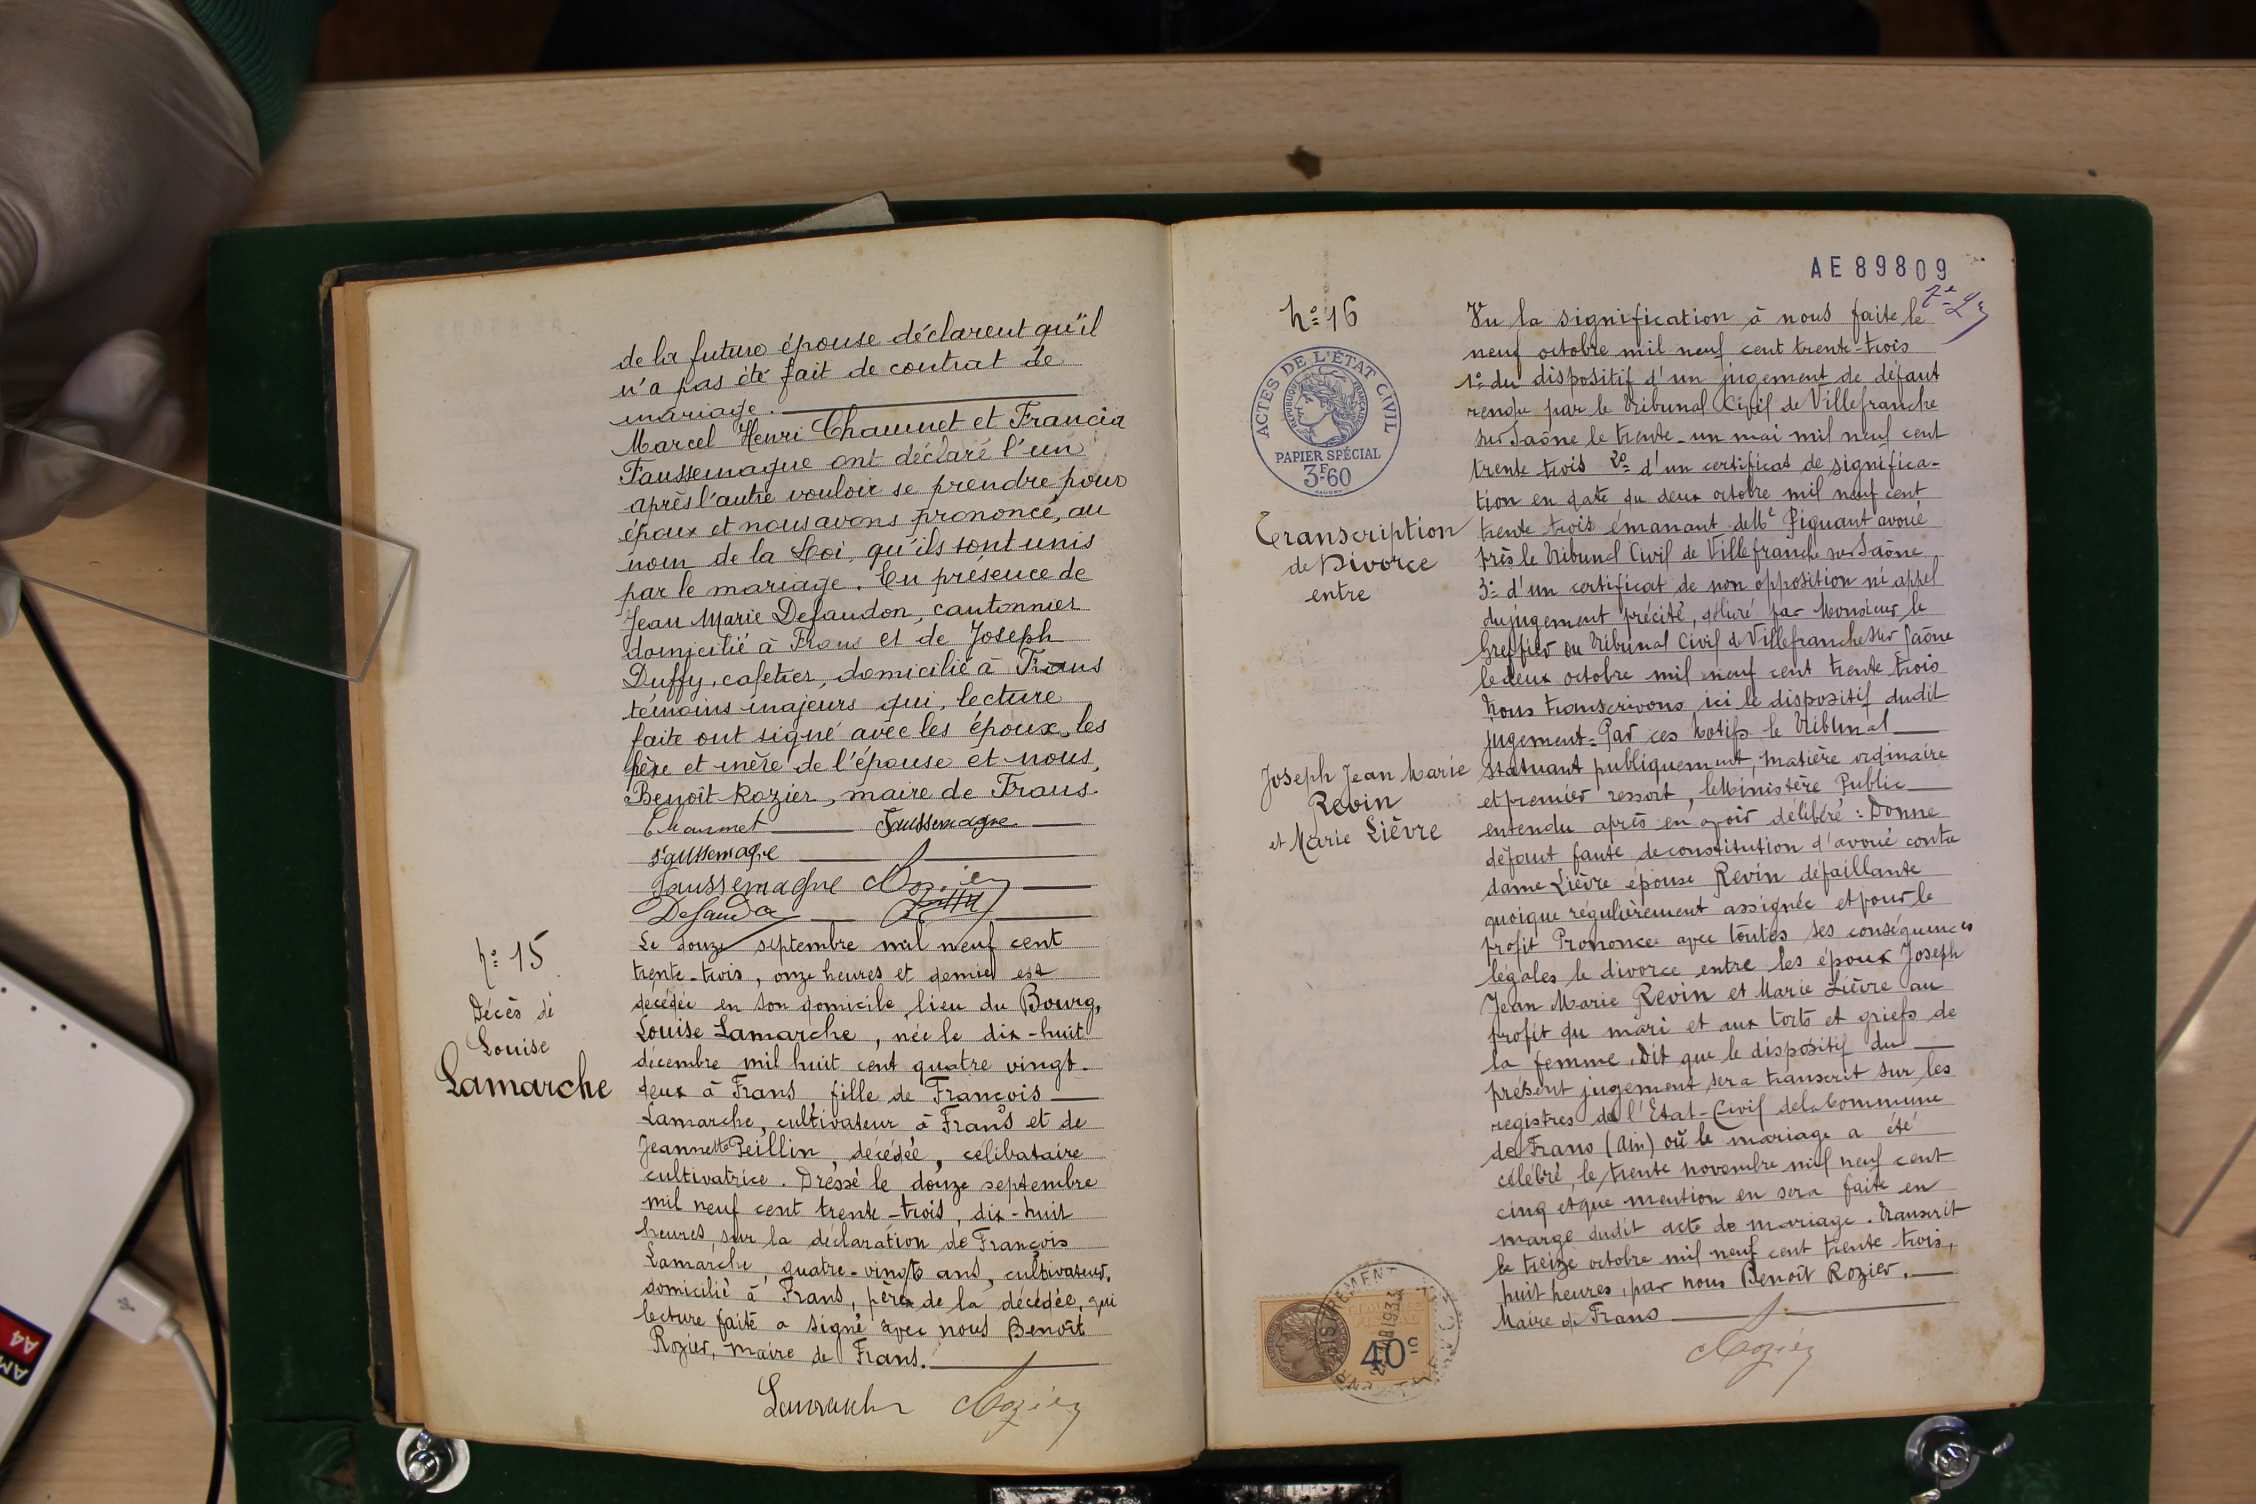 de la future épouse déclarent qu'il
n'a pas été fait de contrat de
mariage.
Marcel Henri Chaumet et Francia
Faussemagne ont déclaré l'un
après l'autre vouloir se prendre pour
époux et nous avons prononcé, au
nom de la Loi, qu'ils sont unis
par le mariage. En présence de
Jean Marie Defaudon, cantonnier
domicilié à Frans et de Joseph
Duffy, cafetier, domicilié à Frans
témoins majeurs qui, lecture
faite ont signé avec les époux, les
père et mère de l'épouse et nous,
Benoît Rozier, maire de Frans.
Chaumet Faussemagne
Faussemagne
Faussemagne Rozier
n° 15
Décès de
Louise
Lamarche
Le douze septembre mil neuf cent
trente-trois, onze heures et demie est
décédée en son domicile, lieu du Bourg,
Louise Lamarche, née le dix-huit
décembre mil huit cent quatre vingt-
deux à Frans, fille de François
Lamarche, cultivateur à Frans et de
Jeannette Peillin, décédée, célibataire
cultivatrice. Dressé le douze septembre
mil neuf cent trente-trois, dix-huit
heures, sur la déclaration de François
Lamarche, quatre-vingts ans, cultivateur,
domicilié à Frans, père de la décédée, qui
lecture faite a signé avec nous Benoît
Rozier, maire de Frans.
Lamarche Rozier
AE89809
n° 16
ACTES DE L'ÉTAT CIVIL
RÉPUBLIQUE FRANÇAISE
PAPIER SPÉCIAL
3F60
Transcription
de Divorce
entre
Joseph Jean Marie
Revin
et Marie Lièvre
Vu la signification à nous faite le
neuf octobre mil neuf cent trente-trois
1° du dispositif d'un jugement de défaut
rendu par le Tribunal Civil de Villefranche
sur Saône le trente-un mai mil neuf cent
trente trois 2° d'un certificat de significa-
tion en date du deux octobre mil neuf cent
trente trois émanant de Me Piquant avoué
près le Tribunal Civil de Villefranche sur Saône
3° d'un certificat de non opposition ni appel
du jugement précité, délivré par Monsieur le
Greffier du Tribunal Civil de Villefranche sur Saône
le deux octobre mil neuf cent trente trois
Nous transcrivons ici le dispositif dudit
jugement = Par ces Motifs le Tribunal
statuant publiquement, matière ordinaire
et premier ressort, le Ministère Public
entendu après en avoir délibéré : Donne
défaut faute de constitution d'avoué contre
dame Lièvre épouse Revin défaillante
quoique régulièrement assignée et pour le
profit Prononce avec toutes ses conséquences
légales le divorce entre les époux Joseph
Jean Marie Revin et Marie Lièvre au
profit du mari et aux torts et griefs de
la femme. Dit que le dispositif du
présent jugement sera transcrit sur les
registres de l'Etat-Civil de la Commune
de Frans (Ain) où le mariage a été
célébré, le trente novembre mil neuf cent
cinq et que mention en sera faite en
marge dudit acte de mariage. Transcrit
le treize octobre mil neuf cent trente trois,
huit heures, par nous Benoît Rozier,
Maire de Frans
Rozier
40c
A4